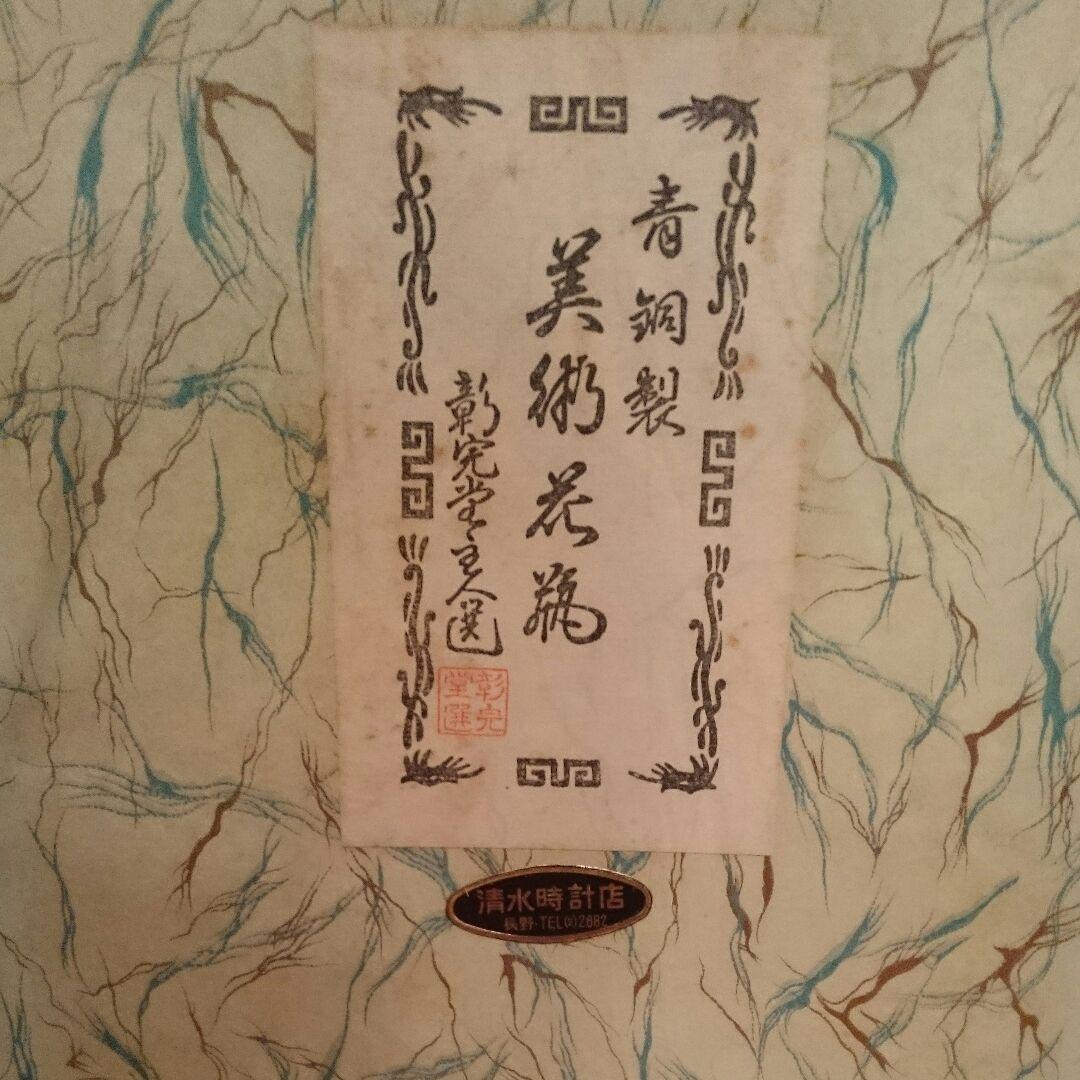 青銅製
美術花瓶
彰完堂主人選
彰完
堂選
清水時計店
長野・TEL(2)2682